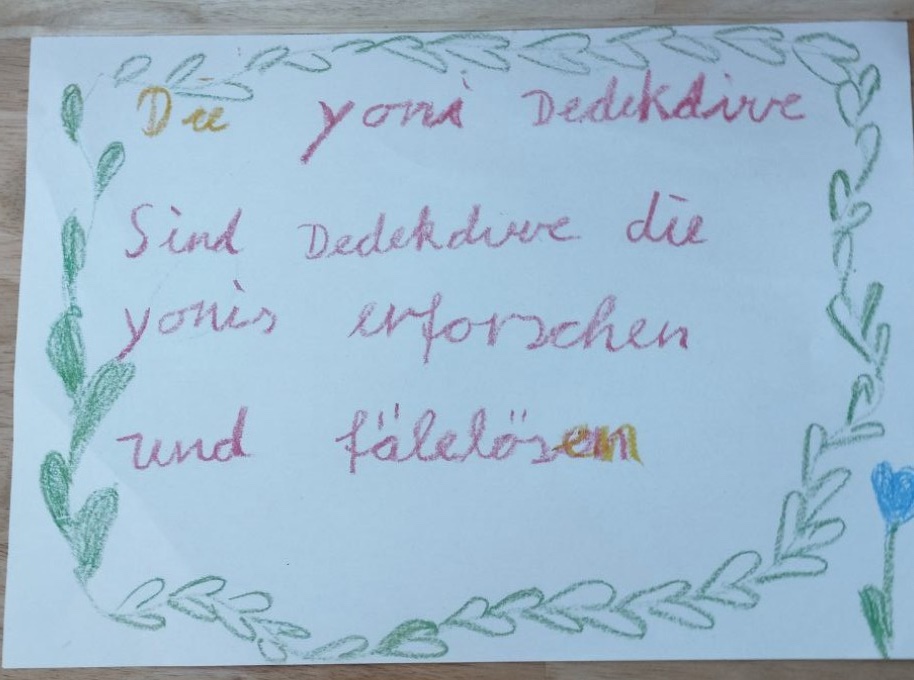 Die yoni Dedekdive
Sind Dedekdive die
yonis erforschen
und fälelösen